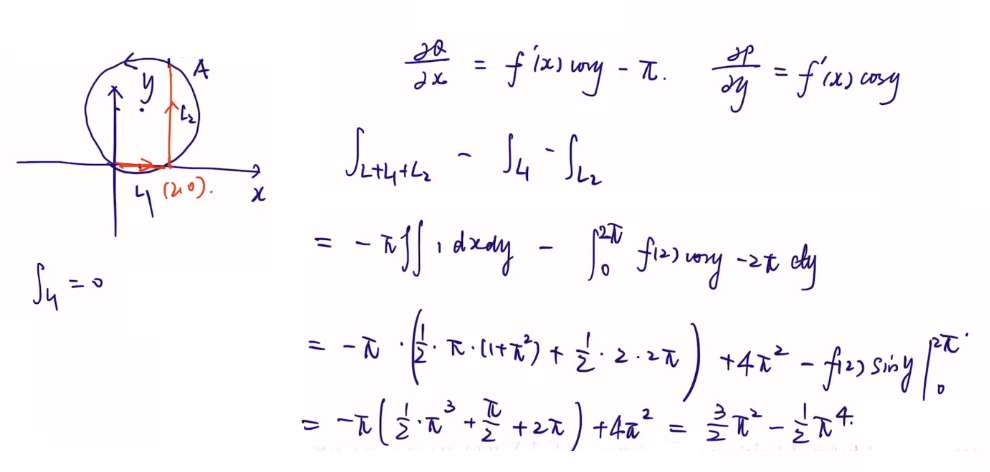 y A
L₂
L₁ (2,0). x
∫L₁ = 0
∂Q/∂x = f'(x) cosy - π. ∂P/∂y = f'(x) cosy
∫L+L₁+L₂ - ∫L₁ - ∫L₂
= -π∬ 1 dxdy - ∫₀^2π f(2) cosy - 2π dy
= -π · (1/2 · π · (1+π²) + 1/2 · 2 · 2π) + 4π² - f(2) siny |₀^2π
= -π(1/2 · π³ + π/2 + 2π) + 4π² = 3/2 π² - 1/2 π⁴.